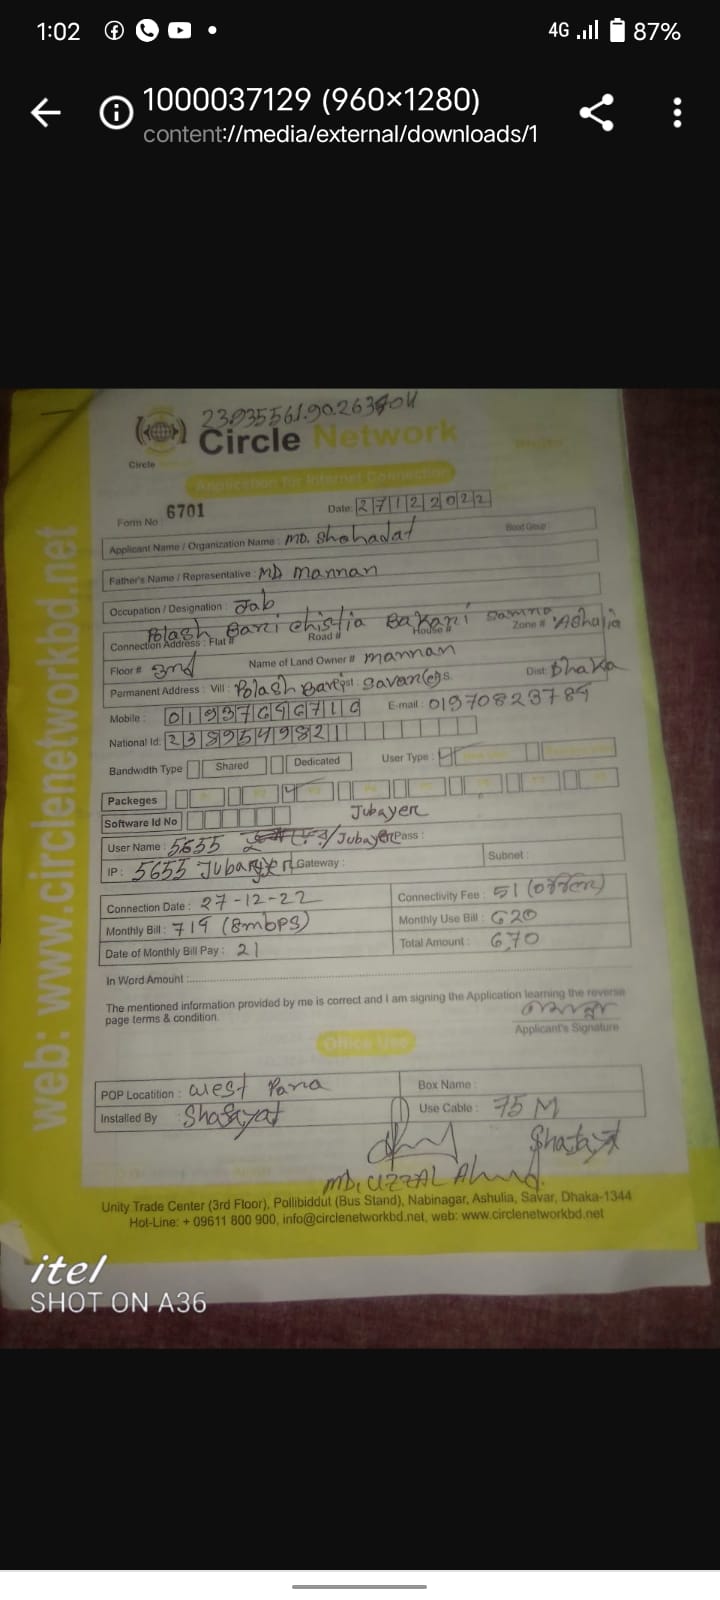 1:02 4G 87%
1000037129 (960×1280)
content://media/external/downloads/1
Circle Network
Circle
Application for Internet Connection
Form No 6701 Date: 27122022
Applicant Name / Organization Name : MD. Shohadat Blood Group :
Father's Name / Representative : MD Mannan
Occupation / Designation : Jab
Polash Bari chistia Bakari Ashulia
Connection Address : Flat # Road # House # Zone #
Floor # 3nd Name of Land Owner # mannan
Permanent Address : Vill : Polash Bari Dist: Dhaka
Mobile : E-mail : 01970823784
National Id: 2389549821
Bandwidth Type Shared Dedicated User Type :
Packeges
Software Id No Jubayer
User Name : 5655 /Jubayer Pass :
IP : 5655 Jubayer Gateway : Subnet :
Connection Date : 27-12-22 Connectivity Fee : 51
Monthly Bill : 719 (8mbps) Monthly Use Bill : 620
Date of Monthly Bill Pay : 21 Total Amount : 670
In Word Amount :
The mentioned information provided by me is correct and I am signing the Application learning the reverse
page terms & condition.
Applicant's Signature
Office Use
POP Locatition : west Para Box Name :
Installed By : Shafayat Use Cable : 75 M
MD. UZZAL Ahmed.
Unity Trade Center (3rd Floor), Pollibiddut (Bus Stand), Nabinagar, Ashulia, Savar, Dhaka-1344
Hot-Line: + 09611 800 900, info@circlenetworkbd.net, web: www.circlenetworkbd.net
web: www.circlenetworkbd.net
itel
SHOT ON A36